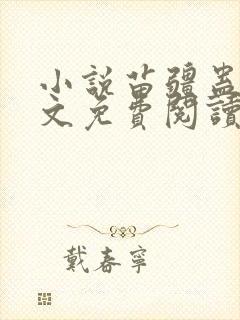 小說苗疆蠱
文免費閱讀
戴春寧